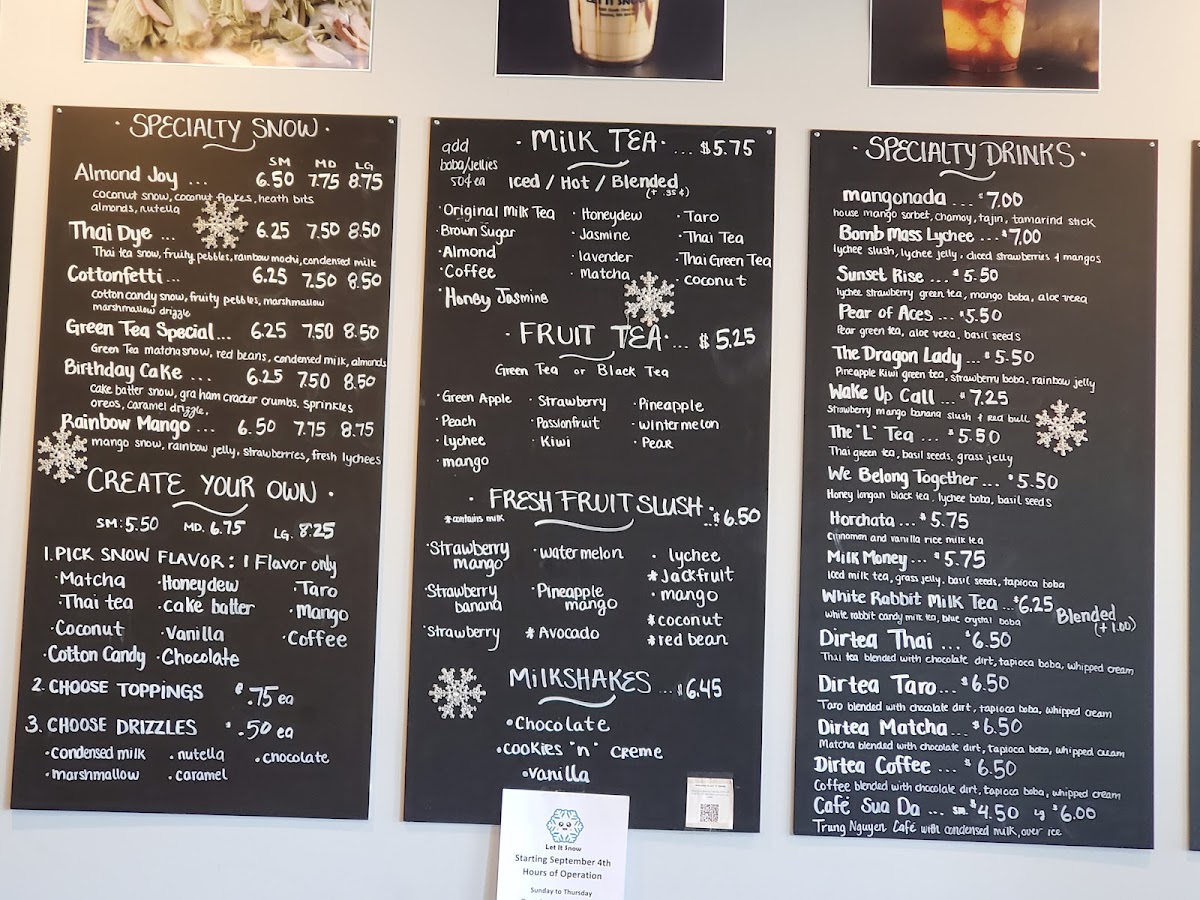 LET IT SNOW
· SPECIALTY SNOW ·
SM MD LG
Almond Joy ... 6.50 7.75 8.75
coconut snow, coconut flakes, heath bits
almonds, nutella
Thai Dye ... 6.25 7.50 8.50
Thai tea snow, fruity pebbles, rainbow mochi, condensed milk
Cottonfetti ... 6.25 7.50 8.50
cotton candy snow, fruity pebbles, marshmallow
marshmallow drizzle
Green Tea Special... 6.25 7.50 8.50
Green Tea matcha snow, red beans, condensed milk, almonds
Birthday Cake ... 6.25 7.50 8.50
cake batter snow, graham cracter crumbs, sprinkles
oreos, caramel drizzle,
Rainbow Mango ... 6.50 7.75 8.75
mango snow, rainbow jelly, strawberries, fresh lychees
CREATE YOUR OWN ·
SM: 5.50 MD. 6.75 LG. 8.25
1. PICK SNOW FLAVOR: 1 Flavor only
·Matcha ·Honeydew ·Taro
·Thai tea ·cake batter ·Mango
·Coconut ·Vanilla ·Coffee
·Cotton Candy ·Chocolate
2. CHOOSE TOPPINGS $.75 ea
3. CHOOSE DRIZZLES $.50 ea
·condensed milk ·nutella ·chocolate
·marshmallow ·caramel
· MILK TEA· ... $5.75
add
boba/jellies
50¢ ea
Iced / Hot / Blended
(+ .35 ¢)
·Original Milk Tea · Honeydew · Taro
·Brown Sugar · Jasmine · Thai Tea
·Almond · lavender ·Thai Green Tea
·Coffee · Matcha · coconut
·Honey Jasmine
· FRUIT TEA· ... $5.25
Green Tea or Black Tea
·Green Apple · Strawberry · Pineapple
·Peach · Passionfruit · Wintermelon
·lychee · Kiwi · Pear
·mango
· FRESH FRUIT SLUSH · ..$6.50
*contains milk
·Strawberry mango ·watermelon · lychee
*Jackfruit
·Strawberry banana ·Pineapple mango · mango
*coconut
·Strawberry *Avocado *red bean
MILKSHAKES ... $6.45
•Chocolate
•cookies "n" creme
•vanilla
Let It Snow
Starting September 4th
Hours of Operation
Sunday to Thursday
· SPECIALTY DRINKS ·
mangonada ... $7.00
house mango sorbet, chamoy, tajin, tamarind stick
Bomb Mass Lychee ... $7.00
lychee slush, lychee jelly, diced strawberries & mangos
Sunset Rise ... $5.50
lychee strawberry green tea, mango boba, aloe vera
Pear of Aces ... $5.50
Pear green tea, aloe vera, basil seeds
The Dragon Lady ... $5.50
Pineapple Kiwi green tea, strawberry boba, rainbow jelly
Wake Up Call ... $7.25
Strawberry mango banana slush & red bull
The "L" Tea ... $5.50
Thai green tea, basil seeds, grass jelly
We Belong Together ... $5.50
Honey longan black tea, lychee boba, basil seeds
Horchata ... $5.75
Cinnamon and vanilla rice milk tea
Milk Money ... $5.75
Iced milk tea, grass jelly, basil seeds, tapioca boba
White Rabbit Milk Tea ... $6.25 Blended
(+ 1.00)
white rabbit candy milk tea, blue crystal boba
Dirtea Thai ... $6.50
Thai tea blended with chocolate dirt, tapioca boba, whipped cream
Dirtea Taro... $6.50
Taro blended with chocolate dirt, tapioca boba, whipped cream
Dirtea Matcha... $6.50
Matcha blended with chocolate dirt, tapioca boba, whipped cream
Dirtea Coffee ... $6.50
Coffee blended with chocolate dirt, tapioca boba, whipped cream
Café Sua Da ... sm. $4.50 lg $6.00
Trung Nguyen Café with condensed milk, over ice